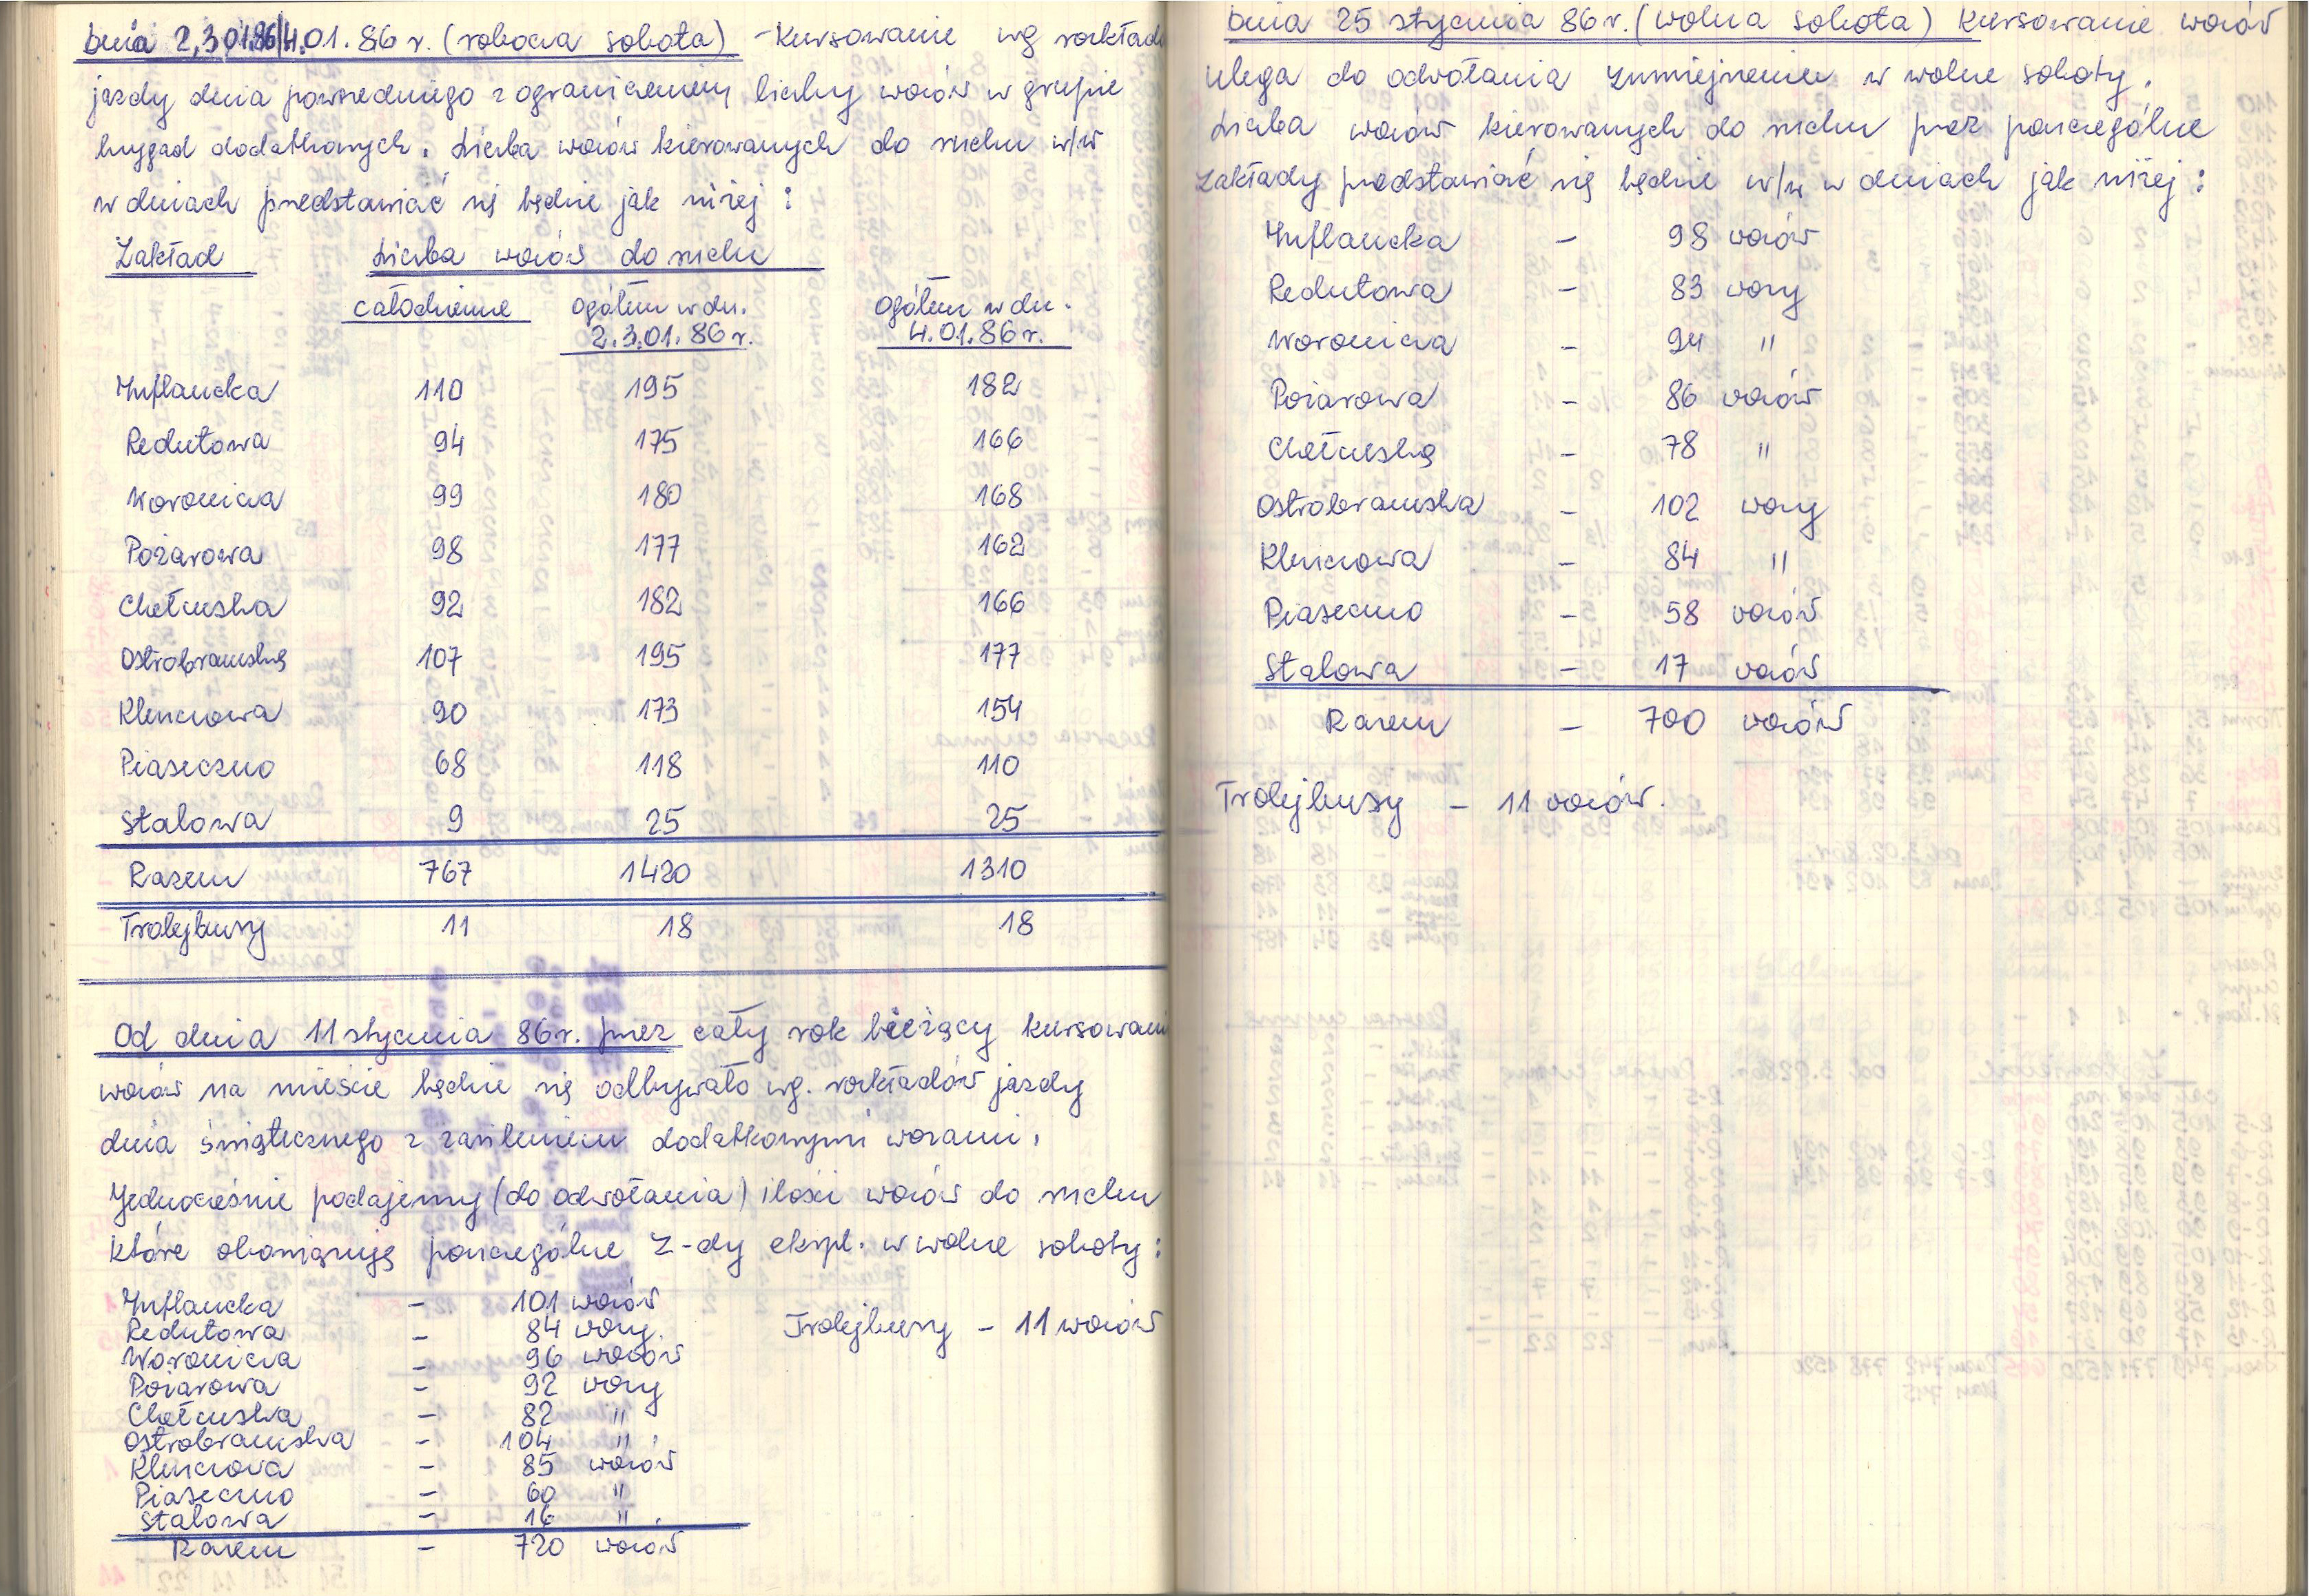 Dnia 2,3.01.86/4.01.86 r. (robocza sobota) - Kursowanie wg rozkładu
jazdy dnia powszedniego z ograniczeniem liczby wozów w grupie
brygad dodatkowych. Liczba wozów kierowanych do ruchu w/w
w dniach przedstawiać się będzie jak niżej :
Zakład Liczba wozów do ruchu
całodzienne ogółem w dn. ogółem w dn.
2.3.01.86 r. 4.01.86 r.
Inflancka 110 195 182
Redutowa 94 175 166
Woronicza 99 180 168
Pożarowa 98 177 162
Chełmska 92 182 166
Ostrobramska 107 195 177
Kleszczowa 90 173 154
Piaseczno 68 118 110
Stalowa 9 25 25
Razem 767 1420 1310
Trolejbusy 11 18 18
Od dnia 11 stycznia 86 r. przez cały rok bieżący kursowani
wozów na mieście będzie się odbywało wg. rozkładów jazdy
dnia świątecznego z zasileniem dodatkowymi wozami.
Jednocześnie podajemy (do odwołania) ilości wozów do ruchu
które obowiązują poszczególne Z-dy ekspl. w wolne soboty :
Inflancka - 101 wozów
Redutowa - 84 wozy.
Woronicza - 96 wozów
Pożarowa - 92 wozy
Chełmska - 82 "
Ostrobramska - 104 "
Kleszczowa - 85 wozów
Piaseczno - 60 "
Stalowa - 16 "
Razem - 720 wozów
Trolejbusy - 11 wozów
Dnia 25 stycznia 86 r. (wolna sobota) Kursowanie wozów
ulega do odwołania zmniejszeniu w wolne soboty.
Liczba wozów kierowanych do ruchu przez poszczególne
zakłady przedstawiać się będzie w/w w dniach jak niżej :
Inflancka - 98 wozów
Redutowa - 83 wozy
Woronicza - 94 "
Pożarowa - 86 wozów
Chełmska - 78 "
Ostrobramska - 102 wozy
Kleszczowa - 84 "
Piaseczno - 58 wozów
Stalowa - 17 wozów
Razem - 700 wozów
Trolejbusy - 11 wozów.